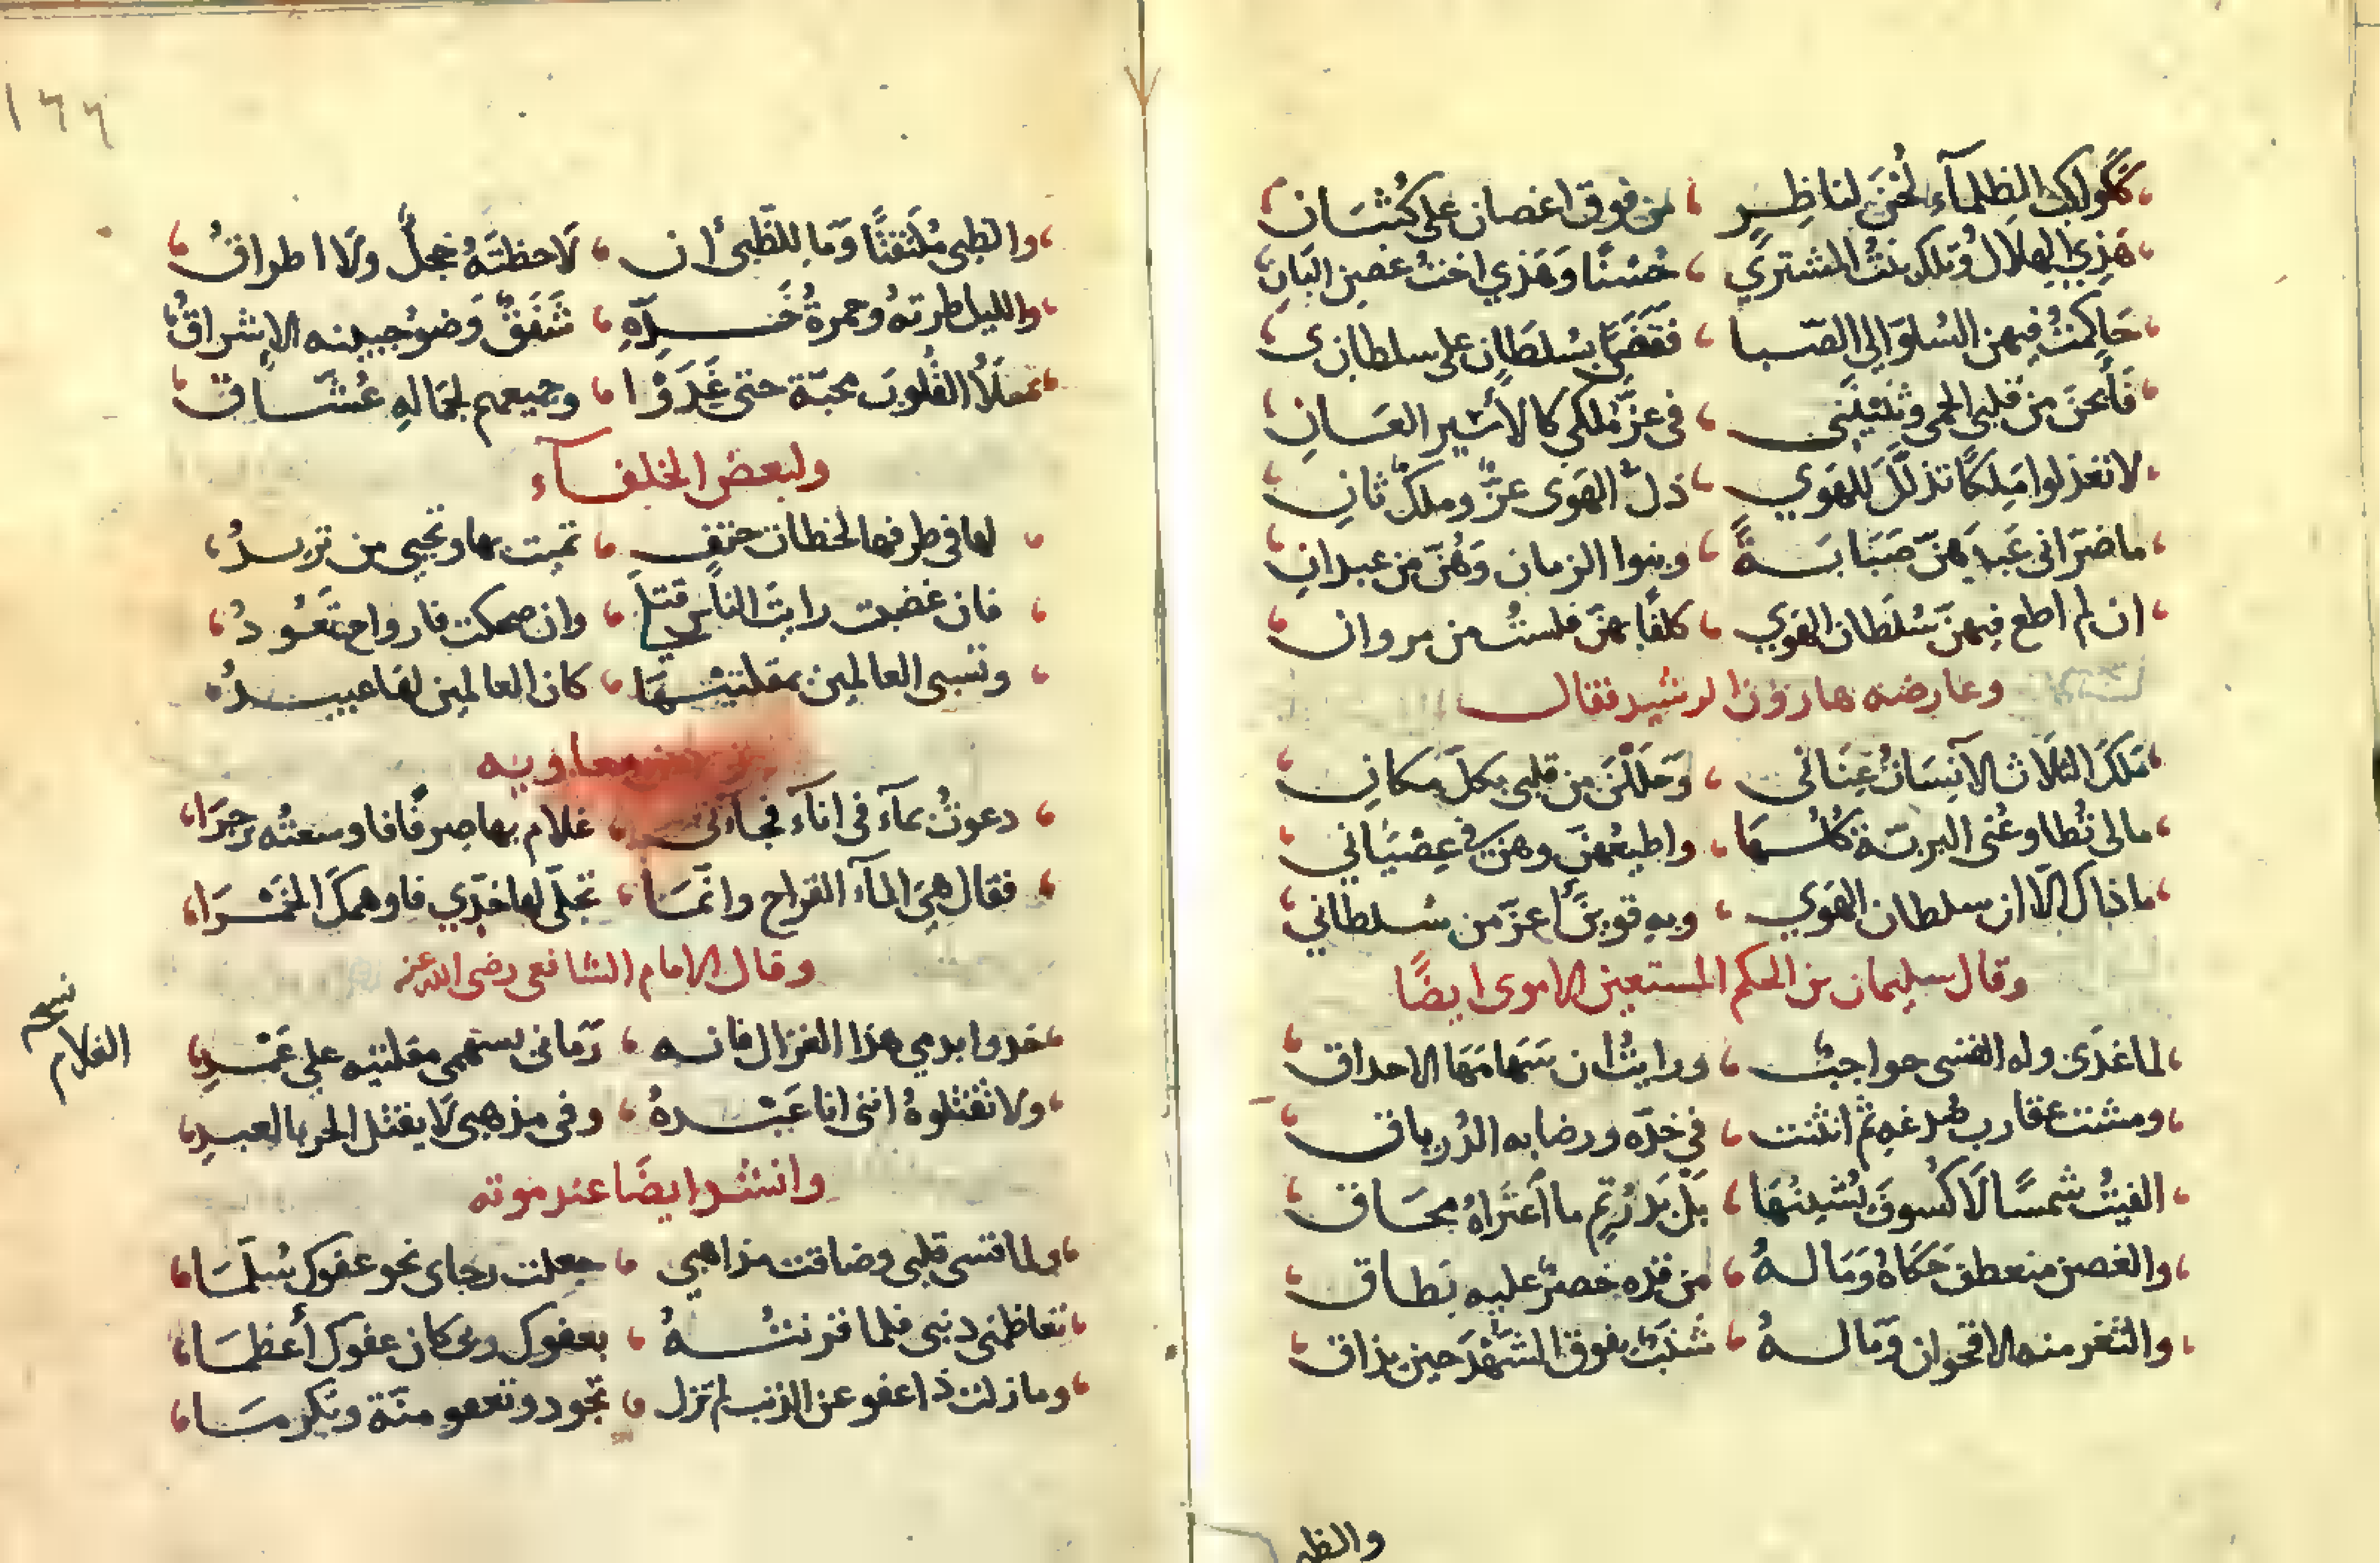 ككواكب الظلمآء لُحْنَ لناظِرٍ ، من فوق اغصان على كُثبَان
هَذِي الهلَالُ وتلك بنتُ المشتري ، حُسْنًا وَهَذي اختُ غصن البَانِ
حَاكمتُ فيهن السلوَ الى الصّبا ، فقَضَى بسُلطَانٍ على سلطانى
فَأبحنَ من قلبى الحمى وثنينَنى ، فى عزِّ مُلكى كالأسير العَانِ
لا تعذلوا مَلِكًا تذلّلَ للهَوي ، ذلّ الهَوى عزٌّ وملكٌ ثانِ
ما ضرّ انى عَبدهنّ صَبَابَةً ، وبنوا الزمان وَهُنّ من عبدانِ
ان لم اطع فيهنّ سُلطان الهوي ، كلفًا بهنّ فلستُ من مروان
وعارضه هارون الرشيد فقال
مَلَكَ الثلَاث الآنِسَاتُ عِنَانى ، وَحَلَلْنَ من قلبى بكلّ مكان
مالى تُطاوعُنى البريّة كُلُّهَا ، واطيعُهنّ وهنّ فى عِصْيَاني
ماذاك الّا ان سلطان الهَوي ، وبه قوينَ أعزّ من سلطاني
وقال سليمان بن الحكم المستعين الاموى ايضًا
لما غدَى وله القسى حواجبٌ ، ورايتُ ان سَهَامَهَا الاحداق
ومشت عقارب صُدغه ثم انثنت ، في خدّه ورضابه الدُرياق
الفيتُ شمسًا لَا كُسوفَ يُشينُهَا ، بَلْ بَدْرُ تِم ما اَعتَرَاهُ محَاق
والغصن منعطف حَكَاهُ وَمَا لهُ ، من قده خصرٌ عليه نطاق
والثغر منه الاقحوان وَمَا لهُ ، شنَبٌ يفوق الشَهْدَ حين يذاق
والظبى
١٦٦
والظبى مُلتفتًا وَمَا للظَّبى أن ، لَاحظتَهُ خجلٌ ولَا اطراقُ
والليل طرتهُ وحمرةُ خَدّهِ ، شَفَقٌ وَضوُ جبينه الاشراقُ
تملَأُ القُلُوبَ محبّة حتى غَدَوْا ، وجميعهم لجمَاله عُشّاق
ولبعض الخلفآء
لها فى طرفها لحظات حتف ، تميت بها وتحيى من تريدُ
فان غضبت رايتَ الناس قتلَى ، وان ضحكت فارواح تَعُودُ
وتسبى العالمين بمقلتيهَا ، كان العالمين لها عبيدُ
معاويه
دعوتُ بمآء فى انآء فجآءنى ، غلام بها صرفًا فاوسعتُه زجرَا
فقال هِيَ المآء القراح وانّمَا ، تجلّى لها خدّي فاوهمكَ الخمْرَا
وقال الامام الشافعى رضى الله عنه
خذوا بدمي هذا الغزال فانه ، رَمَانى بسهمى مقلتيه على عَمْدِ
ولا تقتلوهُ اننى انا عَبْدهُ ، وفى مذهبى لَا يقتل الحر بالعبدِ
وانشد ايضًا عند موته
ولما قسى قلبى وضاقت مذاهبي ، جعلت رجاى نحو عفوك سُلّمَا
تعاظمنى ذنبى فلما قرنتُهُ ، بعفوك ربى كان عفوك أعظمَا
وما زلت ذا عفو عن الذنب لم تزل ، تجود وتعفو منّة وتكرمَا
الغلام